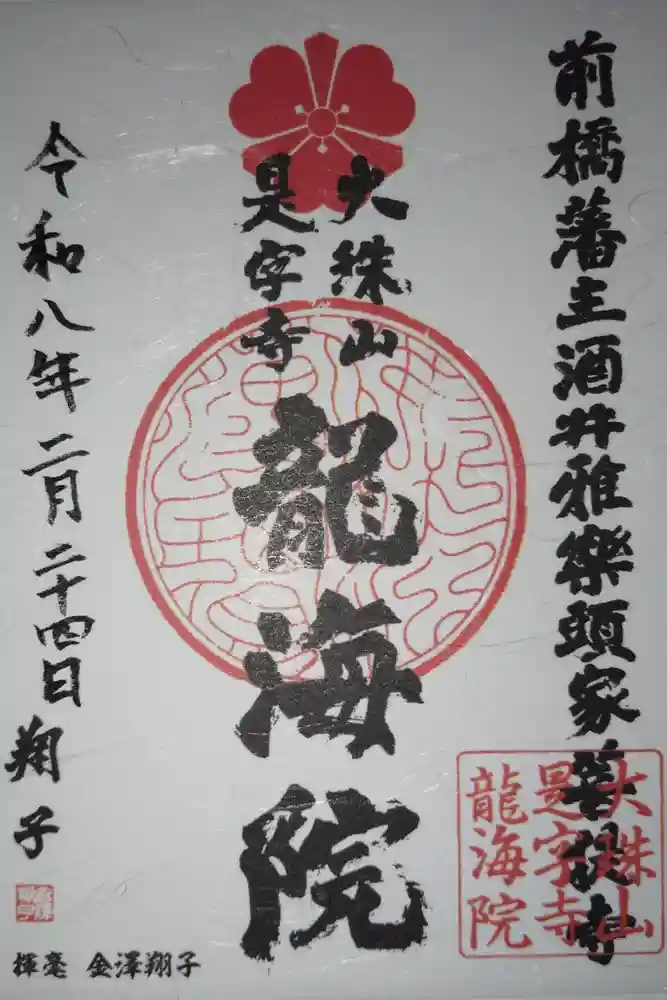 前橋藩主酒井雅樂頭家菩提寺
大珠山
是字寺
龍海院
令和八年二月二十四日 翔子
大珠山
是字寺
龍海院
揮毫 金澤翔子